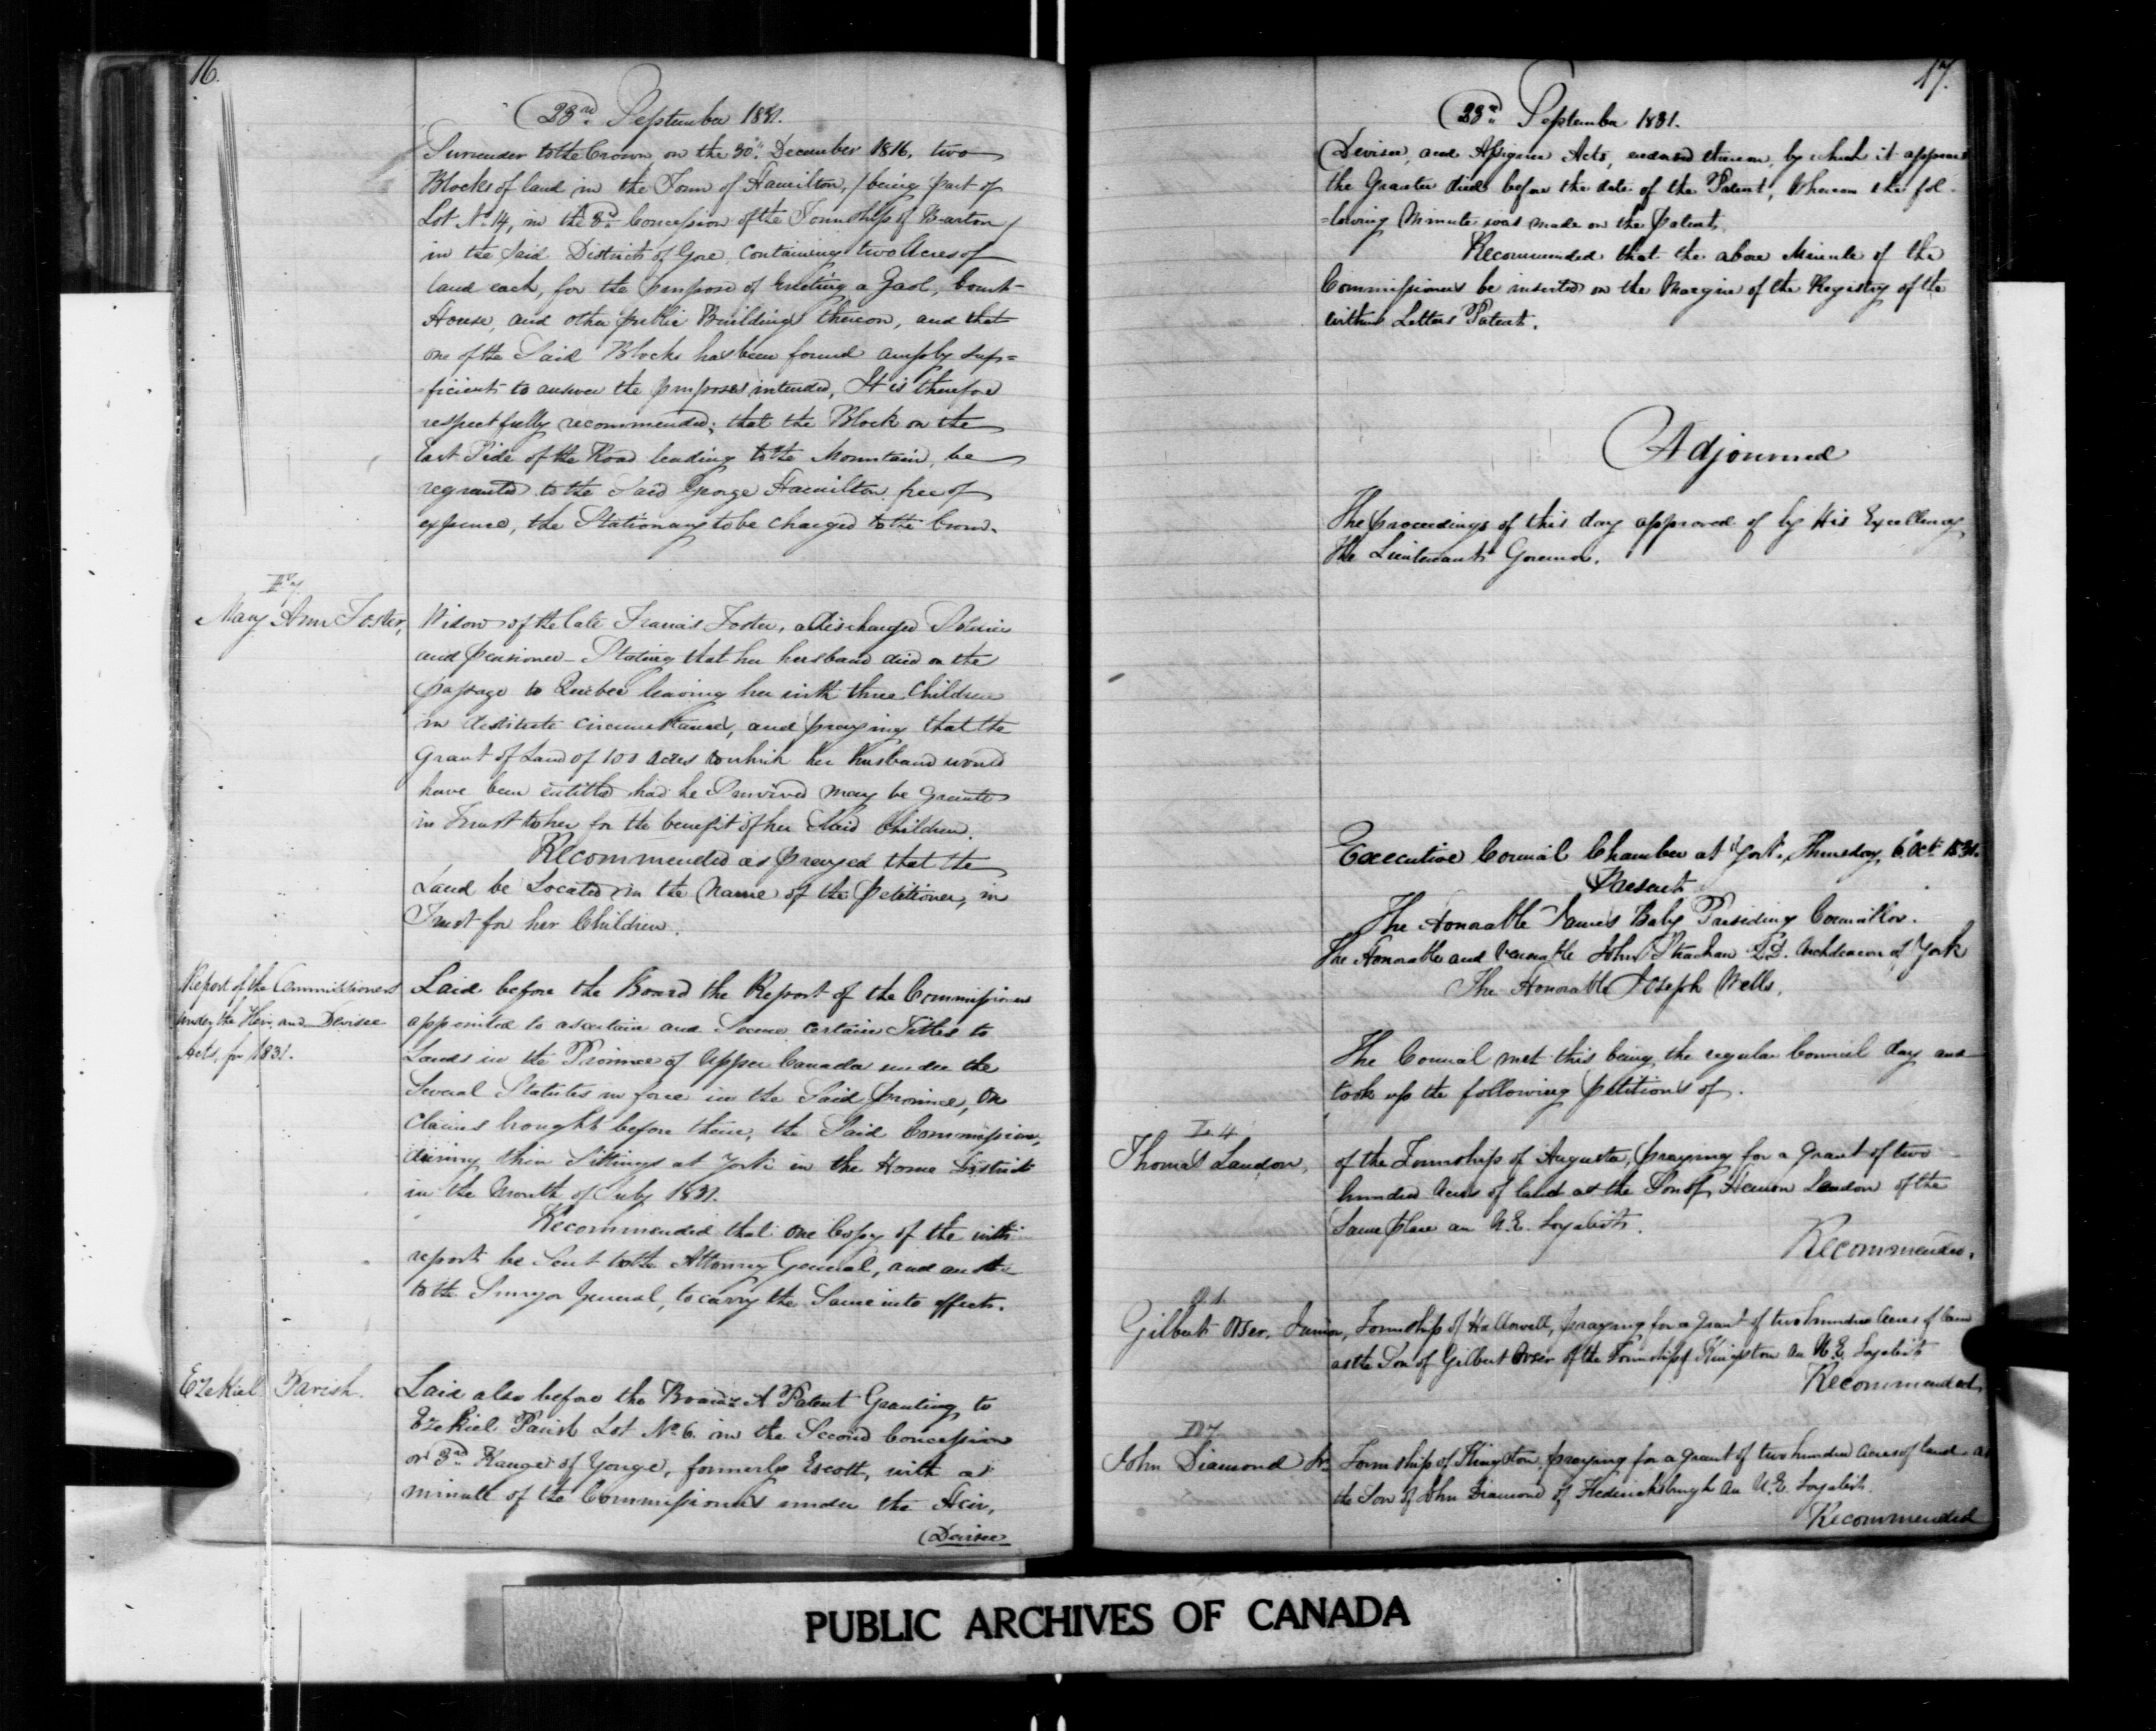 16.
23rd September 1831.
Surrender to the Crown, on the 30th December 1816, two
Blocks of land in the Town of Hamilton, (being part of
Lot No 14, in the 3rd Concession of the Township of Barton)
in the Said District of Gore, containing two Acres of
land each, for the purpose of Erecting a Gaol, Court-
House, and other public Buildings thereon, and that
one of the Said Blocks has been found amply suf=
=ficient to answer the purposes intended, It is therefore
respectfully recommended, that the Block on the
East Side of the Road leading to the Mountain, be
regranted to the Said George Hamilton free of
expence, the Stationary to be charged to the Crown.
F 7
Mary Ann Foster,
Widow of the late Francis Foster, a discharged Soldier
and pensioner - Stating that her husband died on the
passage to Quebec leaving her with three Children
in destitute circumstances, and praying that the
Grant of Land of 100 Acres to which her husband would
have been entitled had he Survived may be granted
in Trust to her for the benefit of her Said Children.
Recommended as prayed that the
Land be Located in the Name of the petitioner, in
Trust for her Children.
Report of the Commissioners
under the Heir, and Devisee
Acts, for 1831.
Laid before the Board the Report of the Commissioners
appointed to ascertain and Secure certain Titles to
Lands in the Province of Upper Canada under the
Several Statutes in force in the Said province, On
Claims brought before them, the Said Commissioners,
during their Sittings at York in the Home District
in the Month of July 1831.
Recommended that one Copy of the within
report be Sent to the Attorney General, and another
to the Surveyor General, to carry the Same into effect.
Ezekiel Parish.
Laid also before the Board A Patent Granting to
Ezekiel Parish Lot No 6. in the Second Concession
or 3rd Range of Yonge, formerly Escott, with a
minute of the Commissioners under the Heir,
(Devisee
17.
23rd September 1831.
Devisee, and Assignee Acts, endorsed thereon, by which it appears
the Grantee died before the date of the Patent, Whereon the fol-
=lowing Minute was made on the patent.
Recommended that the above Minute of the
Commissioners be inserted on the Margin of the Registry of the
within Letters Patent.
Adjourned
The proceedings of this day approved of by His Excellency
the Lieutenant Governor.
Executive Council Chamber at York, Thursday, 6th Octr 1831.
Present
The Honorable James Baby Presiding Councillor.
The Honorable and Venerable John Strachan D.D. Archdeacon of York
The Honorable Joseph Wells.
The Council met this being the regular Council day and
took up the following petitions of.
L 4
Thomas Landon,
of the Township of Augusta, praying for a grant of two
hundred Acres of land as the Son of Heman Landon of the
Same place an U.E. Loyalist.
Recommended.
O 1
Gilbert Orser, Junior, Township of Hallowell, praying for a grant of two hundred Acres of land
as the Son of Gilbert Orser of the Township of Kingston an U.E. Loyalist
Recommended
D 7
John Diamond Jr. Township of Kingston, praying for a grant of two hundred Acres of land as
the Son of John Diamond of Fredericksburgh an U.E. Loyalist.
Recommended
PUBLIC ARCHIVES OF CANADA